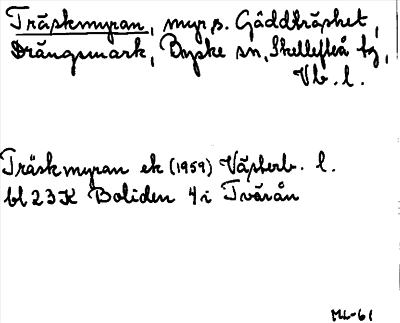 Träskmyran, myr, s. Gäddträsket,
Drängsmark, Byske sn, Skellefteå tg,
Vb. l.
Träskmyran ek (1959) Västerb. l.
bl 23K Boliden 4i Tvärån
ML-61